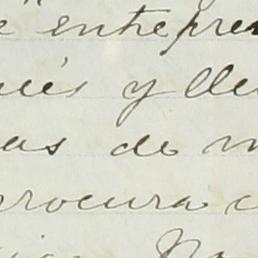 e entrepre
ués y lle
as de m
procura c